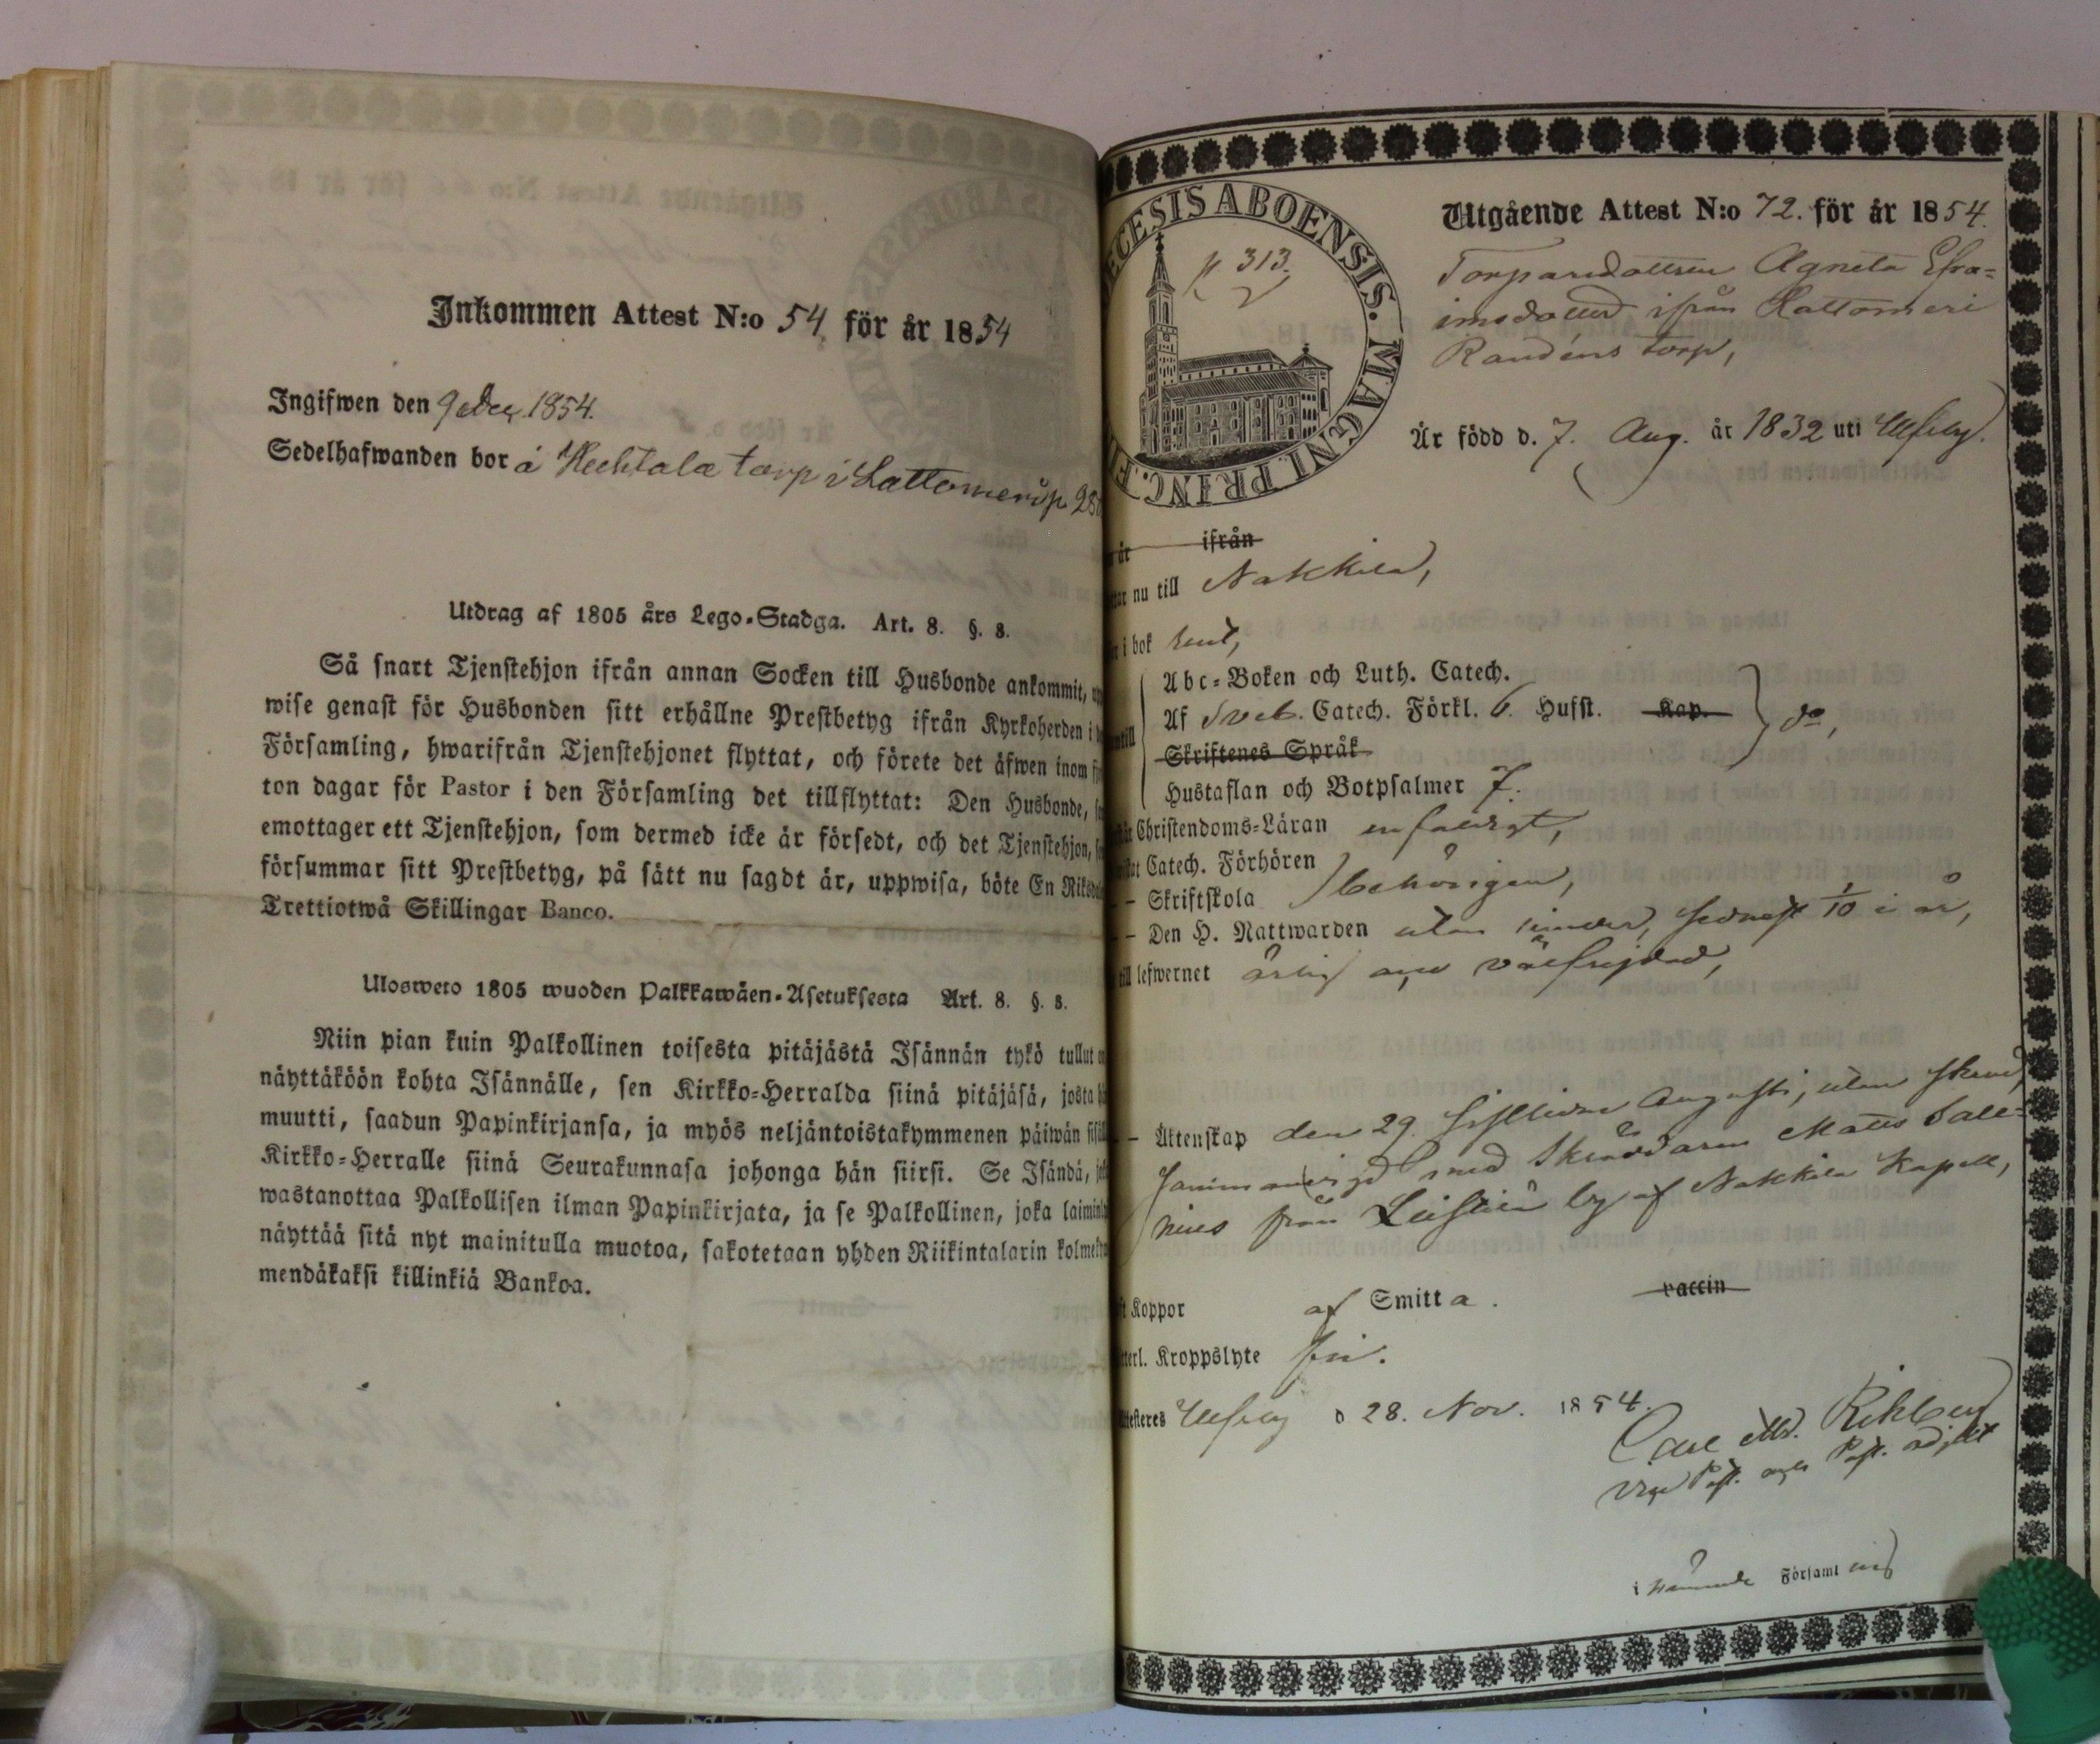 Inkommen Attest N:o 54 för år 1854
Ingifwen den 9 Dec. 1854.
Sedelhafwanden bor å torp i Lattomeri p 28
Utdrag af 1805 års Lego-Stadga. Art. 8. §. 8.
Så snart Tjenstehjon ifrån annan Socken till Husbonde ankommit,
wise genast för Husbonden sitt erhållne Prestbetyg ifrån Kyrkoherden i
Församling, hwarifrån Tjenstehjonet flyttat, och förete det äfwen inom
ton dagar för Pastor i den Församling det tillflyttat: Den Husbonde,
emottager ett Tjenstehjon, som dermed icke är försedt, och det Tjenstehjon,
försummar sitt Prestbetyg, på sätt nu sagdt är, uppwisa, böte En
Trettiotwå Skillingar Banco.
Ulosweto 1805 wuoden Palkkawäen-Asetuksesta Art. 8. §. 8.
Niin pian kuin Palkollinen toisesta pitäjästä Isännän tykö tullut
näyttäköön kohta Isännälle, sen Kirkko-Herralda siinä pitäjäsä, josta
muutti, saadun Papinkirjansa, ja myös neljäntoistakymmenen päiwän
Kirkko-Herralle siinä Seurakunnasa johonga hän siirsi. Se Isändä,
wastanottaa Palkollisen ilman Papinkirjata, ja se Palkollinen, joka
näyttää sitä nyt mainitulla muotoa, sakotetaan yhden Riikintalarin
mendäkaksi killinkiä Bankoa.
ECESIS ABOENSIS. MAGNI. PRINC. F
p 313.
Utgående Attest N:o 72. för år 1854.
Torparedottren Agneta Efra-
imsdotter ifrån Lattomeri
Randéns torp,
Är född d. 7. Aug. år 1832 uti Ulfsby.
år ifrån
nu till Nakkila,
i bok rent,
Abc-Boken och Luth. Catech.
Af Sveb. Catech. Förkl. 6. Hufst. Kap.
do,
Skriftenes Språk
Hustaflan och Botpsalmer 7.
Christendoms-Läran enfaldigt,
Catech. Förhören
behörigen,
- Skriftskola
- Den H. Nattwarden utan hinder, sednast 1/10 i år,
till lefwernet ärlig och välfrejdad,
- Äktenskap den 29. sistlidne Augusti, utan
sammanvigd med Skräddaren Matts Salle-
nius från Leistilä by af Nakkila Kapell,
Koppor af Smitta. vaccin
Kroppslyte fri.
Ulfsby d 28. Nov. 1854.
Carl M. Rikberg
vice Past. Past. adjkt
i nämnde Församling